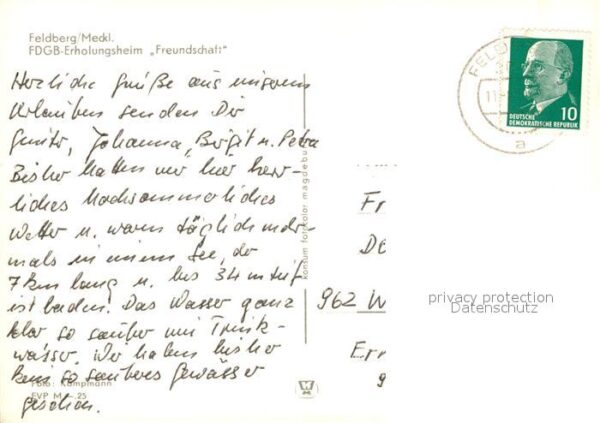 Feldberg/Meckl.
FDGB-Erholungsheim „Freundschaft"
Herzliche Grüße aus unserem
Urlaub senden Dir
Johanna, Birgit u. Petra
Bisher hatten wir hier herr-
liches hochsommerliches
Wetter u. waren täglich mehr-
mals in einem See, der
7 km lang u. bis 34 m tief
ist baden. Das Wasser ganz
klar so sauber wie Trink-
wasser. Wir haben bisher
kein so sauberes Gewässer
gesehen.
Foto: Kampmann
EVP M -.25
konsum fotocolor magdeburg
FELD
11
a
10
DEUTSCHE
DEMOKRATISCHE REPUBLIK
Fr
De
962 W
Err
9
privacy protection
Datenschutz